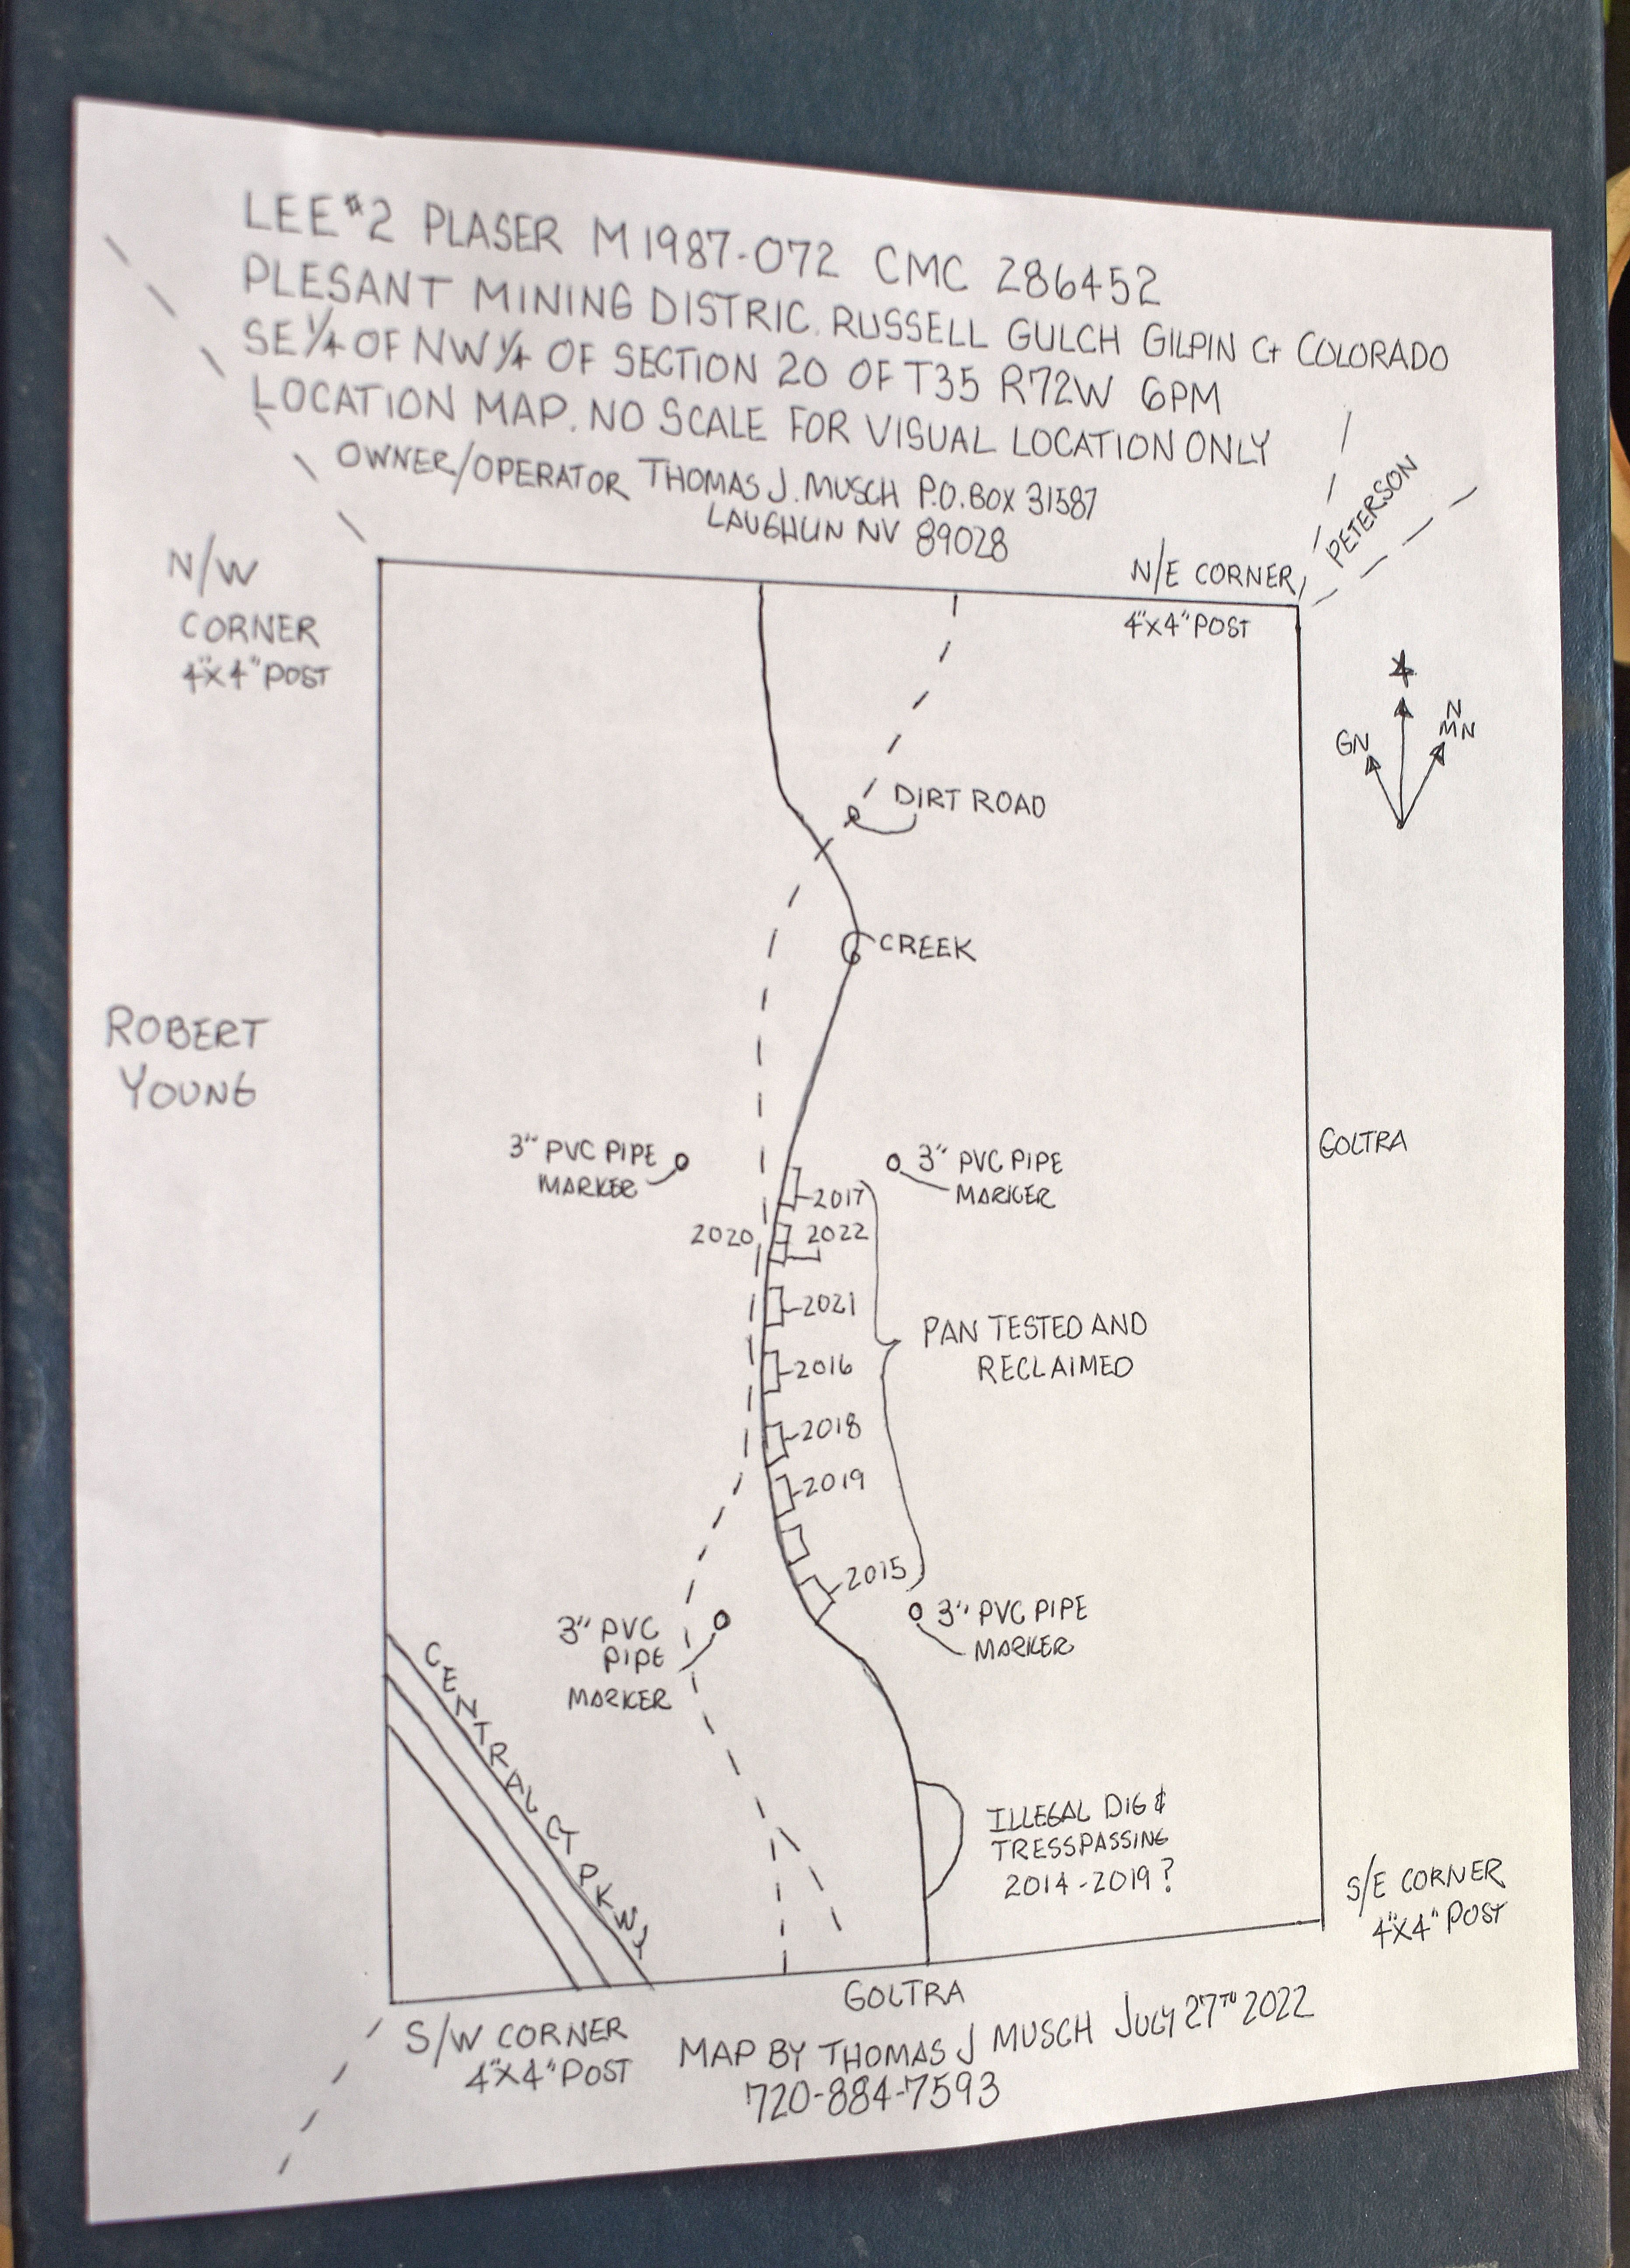 LEE #2 PLASER M1987-072 CMC 286452
PLESANT MINING DISTRIC. RUSSELL GULCH GILPIN Ct COLORADO
SE 1/4 OF NW 1/4 OF SECTION 20 OF T35 R72W 6PM
LOCATION MAP. NO SCALE FOR VISUAL LOCATION ONLY
OWNER/OPERATOR THOMAS J. MUSCH P.O. BOX 31587
LAUGHLIN NV 89028
N/W
CORNER
4"X4" POST
N/E CORNER
4"X4" POST
PETERSON
GN
N
MN
DIRT ROAD
CREEK
ROBERT
YOUNG
GOLTRA
3" PVC PIPE
MARKER
3" PVC PIPE
MARKER
2017
2020
2022
2021
2016
2018
2019
2015
PAN TESTED AND
RECLAIMED
3" PVC
PIPE
MARKER
3" PVC PIPE
MARKER
CENTRAL CT PKWY
ILLEGAL DIG &
TRESSPASSING
2014-2019?
S/E CORNER
4"X4" POST
GOLTRA
S/W CORNER
4"X4" POST
MAP BY THOMAS J MUSCH JULY 27TH 2022
720-884-7593